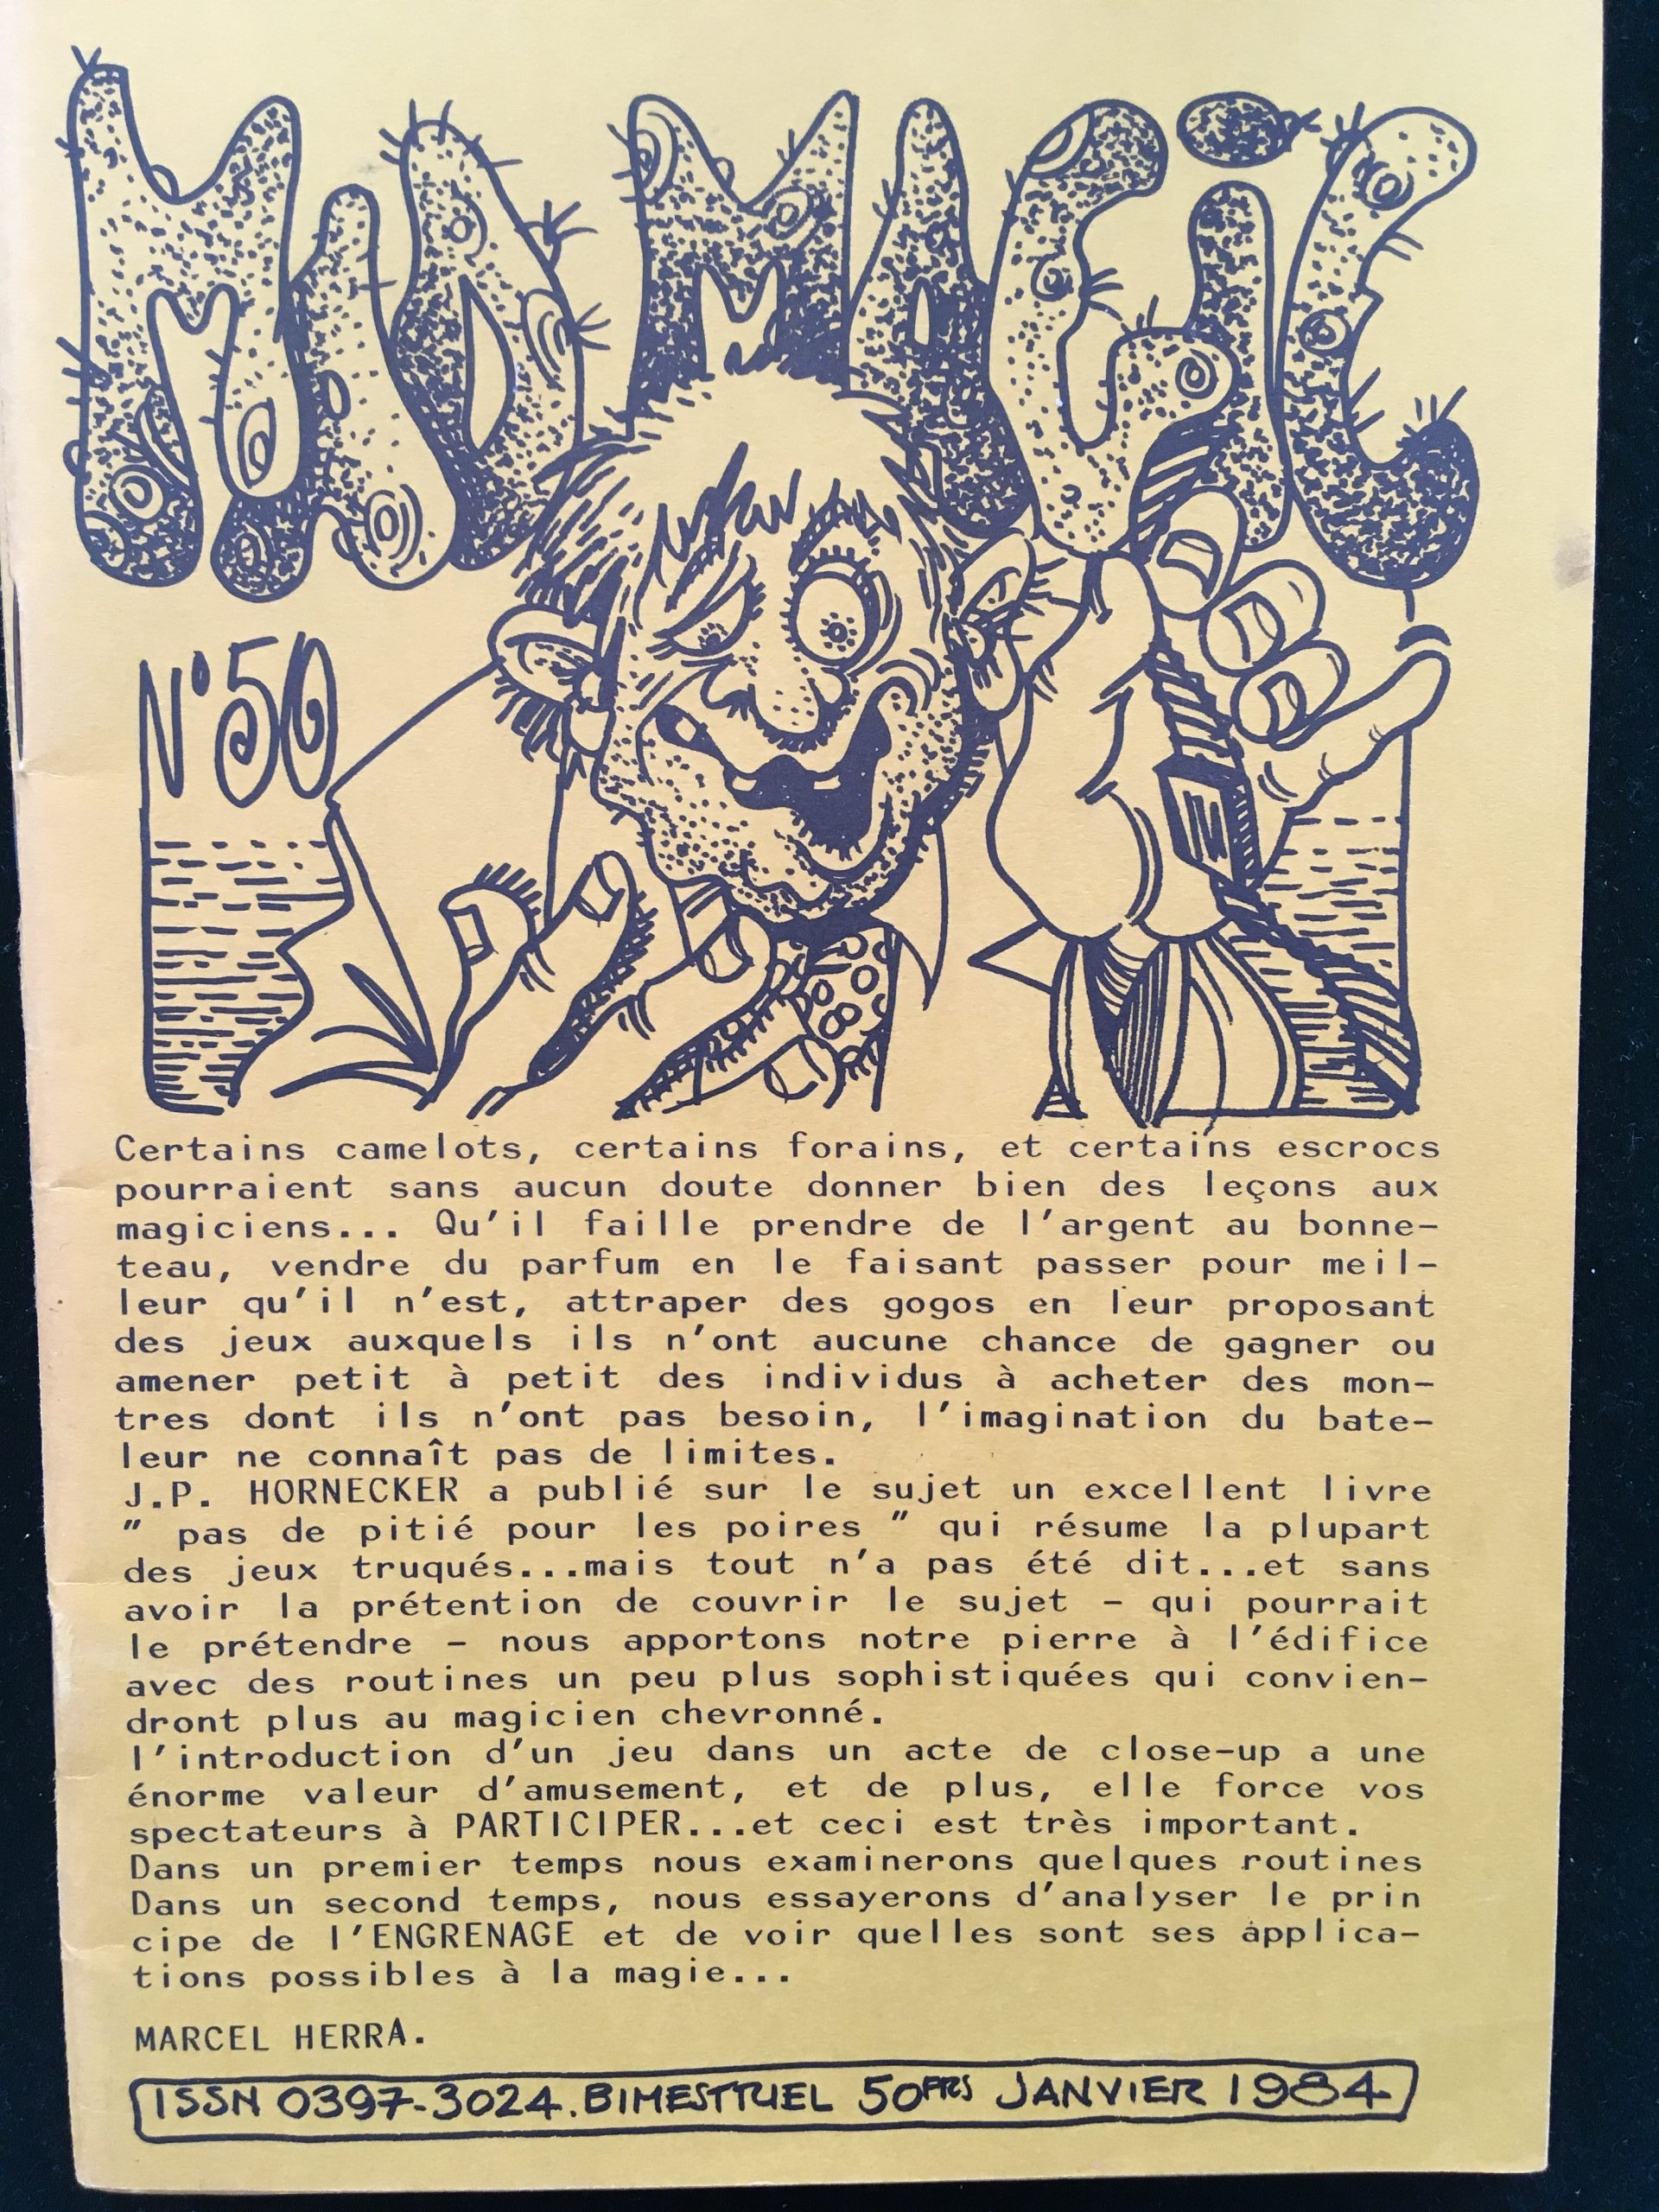 MAD MAGIC
N°50
Certains camelots, certains forains, et certains escrocs
pourraient sans aucun doute donner bien des leçons aux
magiciens... Qu'il faille prendre de l'argent au bonne-
teau, vendre du parfum en le faisant passer pour meil-
leur qu'il n'est, attraper des gogos en leur proposant
des jeux auxquels ils n'ont aucune chance de gagner ou
amener petit à petit des individus à acheter des mon-
tres dont ils n'ont pas besoin, l'imagination du bate-
leur ne connaît pas de limites.
J.P. HORNECKER a publié sur le sujet un excellent livre
" pas de pitié pour les poires " qui résume la plupart
des jeux truqués...mais tout n'a pas été dit...et sans
avoir la prétention de couvrir le sujet - qui pourrait
le prétendre - nous apportons notre pierre à l'édifice
avec des routines un peu plus sophistiquées qui convien-
dront plus au magicien chevronné.
l'introduction d'un jeu dans un acte de close-up a une
énorme valeur d'amusement, et de plus, elle force vos
spectateurs à PARTICIPER...et ceci est très important.
Dans un premier temps nous examinerons quelques routines
Dans un second temps, nous essayerons d'analyser le prin
cipe de l'ENGRENAGE et de voir quelles sont ses applica-
tions possibles à la magie...
MARCEL HERRA.
ISSN 0397-3024.BIMESTRIEL 50FRS JANVIER 1984